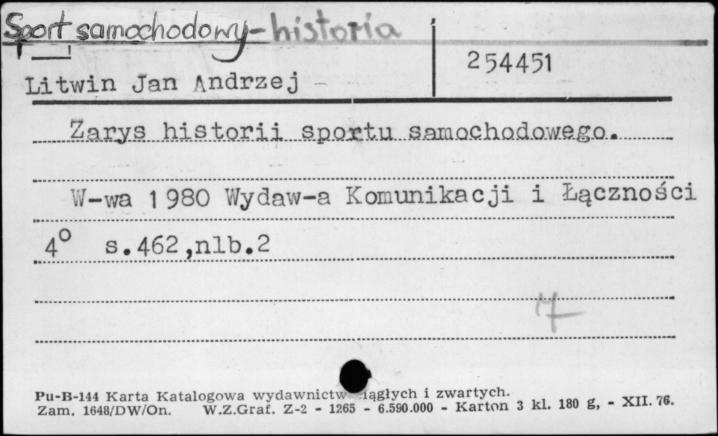 Sport samochodowy - historia
Litwin Jan Andrzej
254451
Zarys historii sportu samochodowego.
W-wa 1980 Wydaw-a Komunikacji i Łączności
4° s.462,nlb.2
Pu-B-144 Karta Katalogowa wydawnictw ciągłych i zwartych.
Zam. 1648/DW/On. W.Z.Graf. Z-2 - 1265 - 6.590.000 - Karton 3 kl. 180 g, - XII. 76.